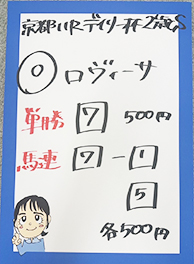 京都11Rデイリー杯2歳S
◎ロヴィーサ
単勝 7 500円
馬連 7-1
5
各500円